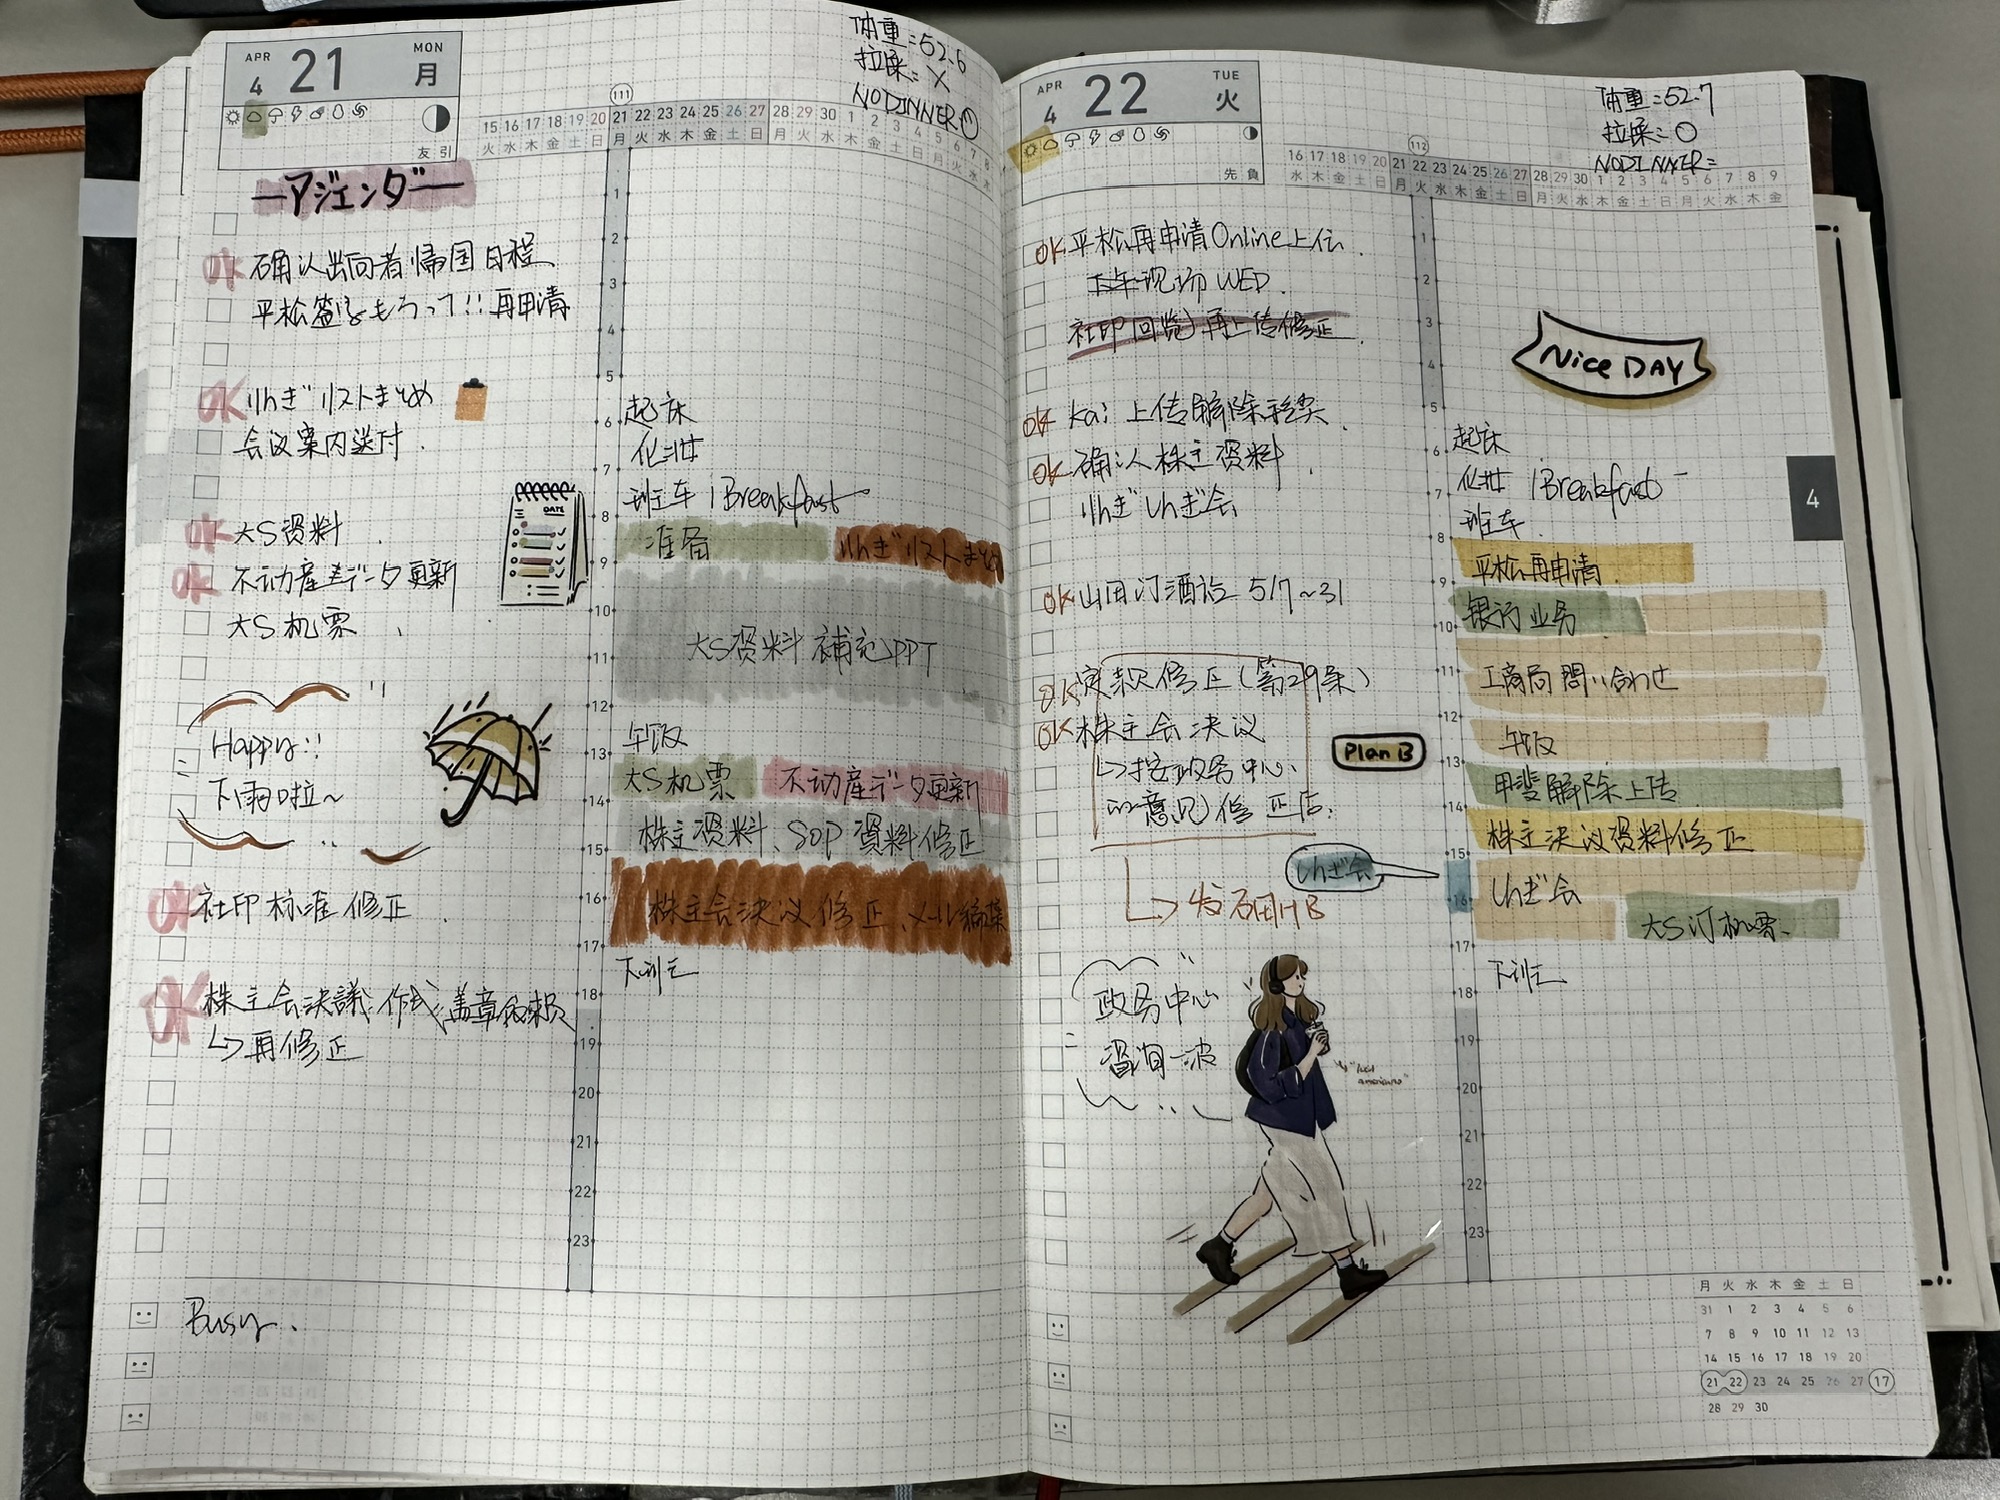 APR
4 21
MON
月
友引
体重=52.6
拉屎=X
NODINNER
111
15 16 17 18 19 20 21 22 23 24 25 26 27 28 29 30 1 2 3 4 5 6 7 8
火 水 木 金 土 日 月 火 水 木 金 土 日 月 火 水 木 金 土 日 月 火 水 木
アジェンダ
OK 确认出向者帰国日程
平松签字もらって!!再申請
OK りんぎリストまとめ
会议案内送付.
OK 大S资料
OK 不动産データ更新
大S机票
Happy!!
下雨啦~
OK 社印标准修正
OK 株主会決議作成 盖章依赖
↳再修正
Busy.
DATE
1
2
3
4
5
6 起床
化妆
7
班车 / Breakfast
8
准备 りんぎリストまとめ
9
10
大S资料補充PPT
11
12
午饭
13
大S机票 不动産データ更新
14
株主资料、SOP资料修正
15
16
株主会決议修正、メール編集
17
下班
18
19
20
21
22
23
APR
4 22
TUE
火
先負
体重=52.7
拉屎=○
NODINNER=
112
16 17 18 19 20 21 22 23 24 25 26 27 28 29 30 1 2 3 4 5 6 7 8 9
水 木 金 土 日 月 火 水 木 金 土 日 月 火 水 木 金 土 日 月 火 水 木 金
OK 平松再申请Online上传.
现场 WED.
社印回览再上传修正.
OK kai 上传解除
OK 确认株主资料
りんぎしんぎ会
OK 山田订酒店 5/7~31
OK 定款修正(第29条)
OK 株主会决议
↳按政务中心
の意见修正后.
Plan B
しんぎ会
政务中心
一波
Nice DAY
1
2
3
4
5
起床
6
化妆 / Breakfast
7
班车
8
平松再申请
9
银行业务
10
11
工商局問い合わせ
12
午饭
13
甲斐解除上传
14
株主决议资料修正
15
しんぎ会
16
大S订机票.
17
下班
18
19
20
21
22
23
4
月 火 水 木 金 土 日
31 1 2 3 4 5 6
7 8 9 10 11 12 13
14 15 16 17 18 19 20
21 22 23 24 25 26 27 17
28 29 30